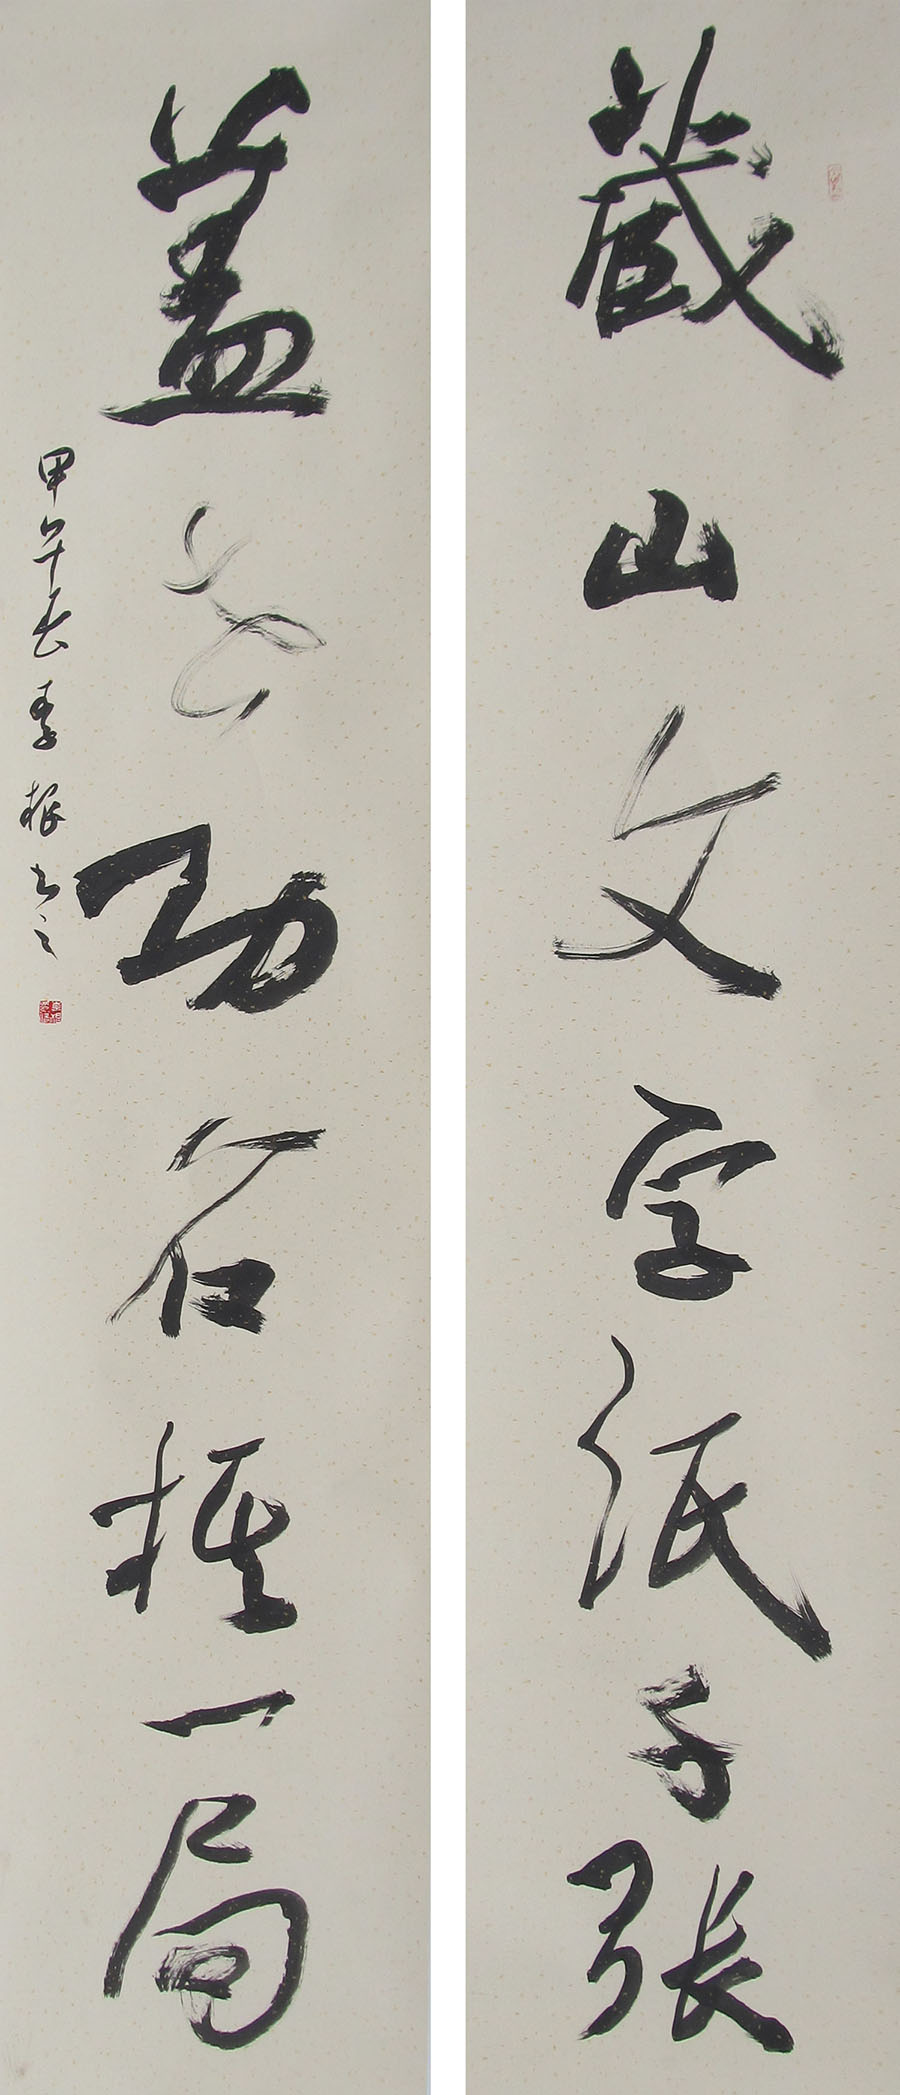 藏山文字纸千张
盖世功名棋一局
甲午长季根书之